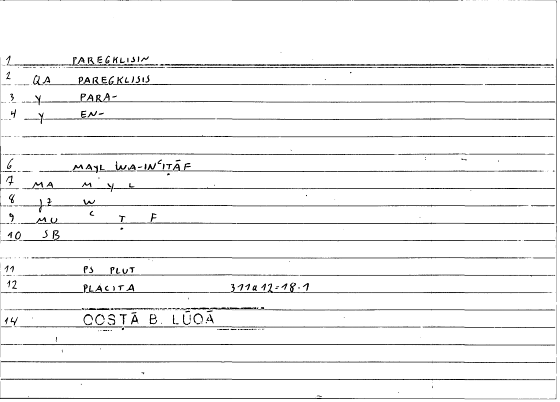 1 PAREGKLISIN
2 QA PAREGKLISIS
3 Y PARA-
4 Y EN-
6 MAYL WA-INʿIṬĀF
7 MA M Y L
8 JZ W
9 MU ʿ Ṭ F
10 SB
11 PS PLUT
12 PLACITA 311a12=18.1
14 QOSṬĀ B. LŪQĀ